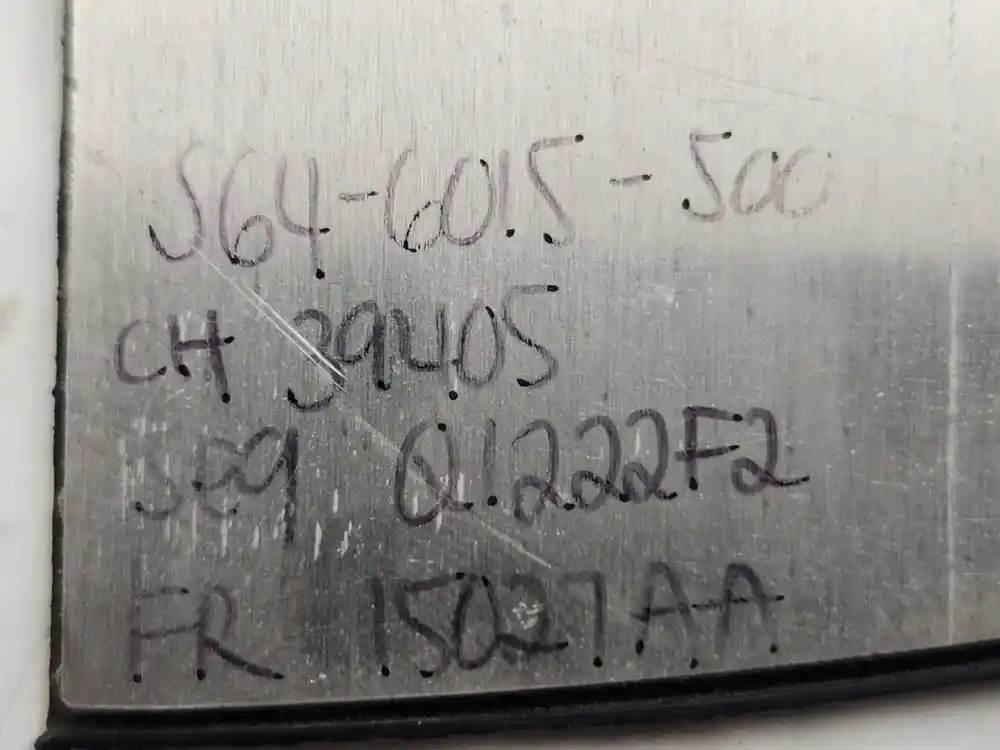 S64-6015-500
CH 39405
Seq Q1222F2
FR 15027AA